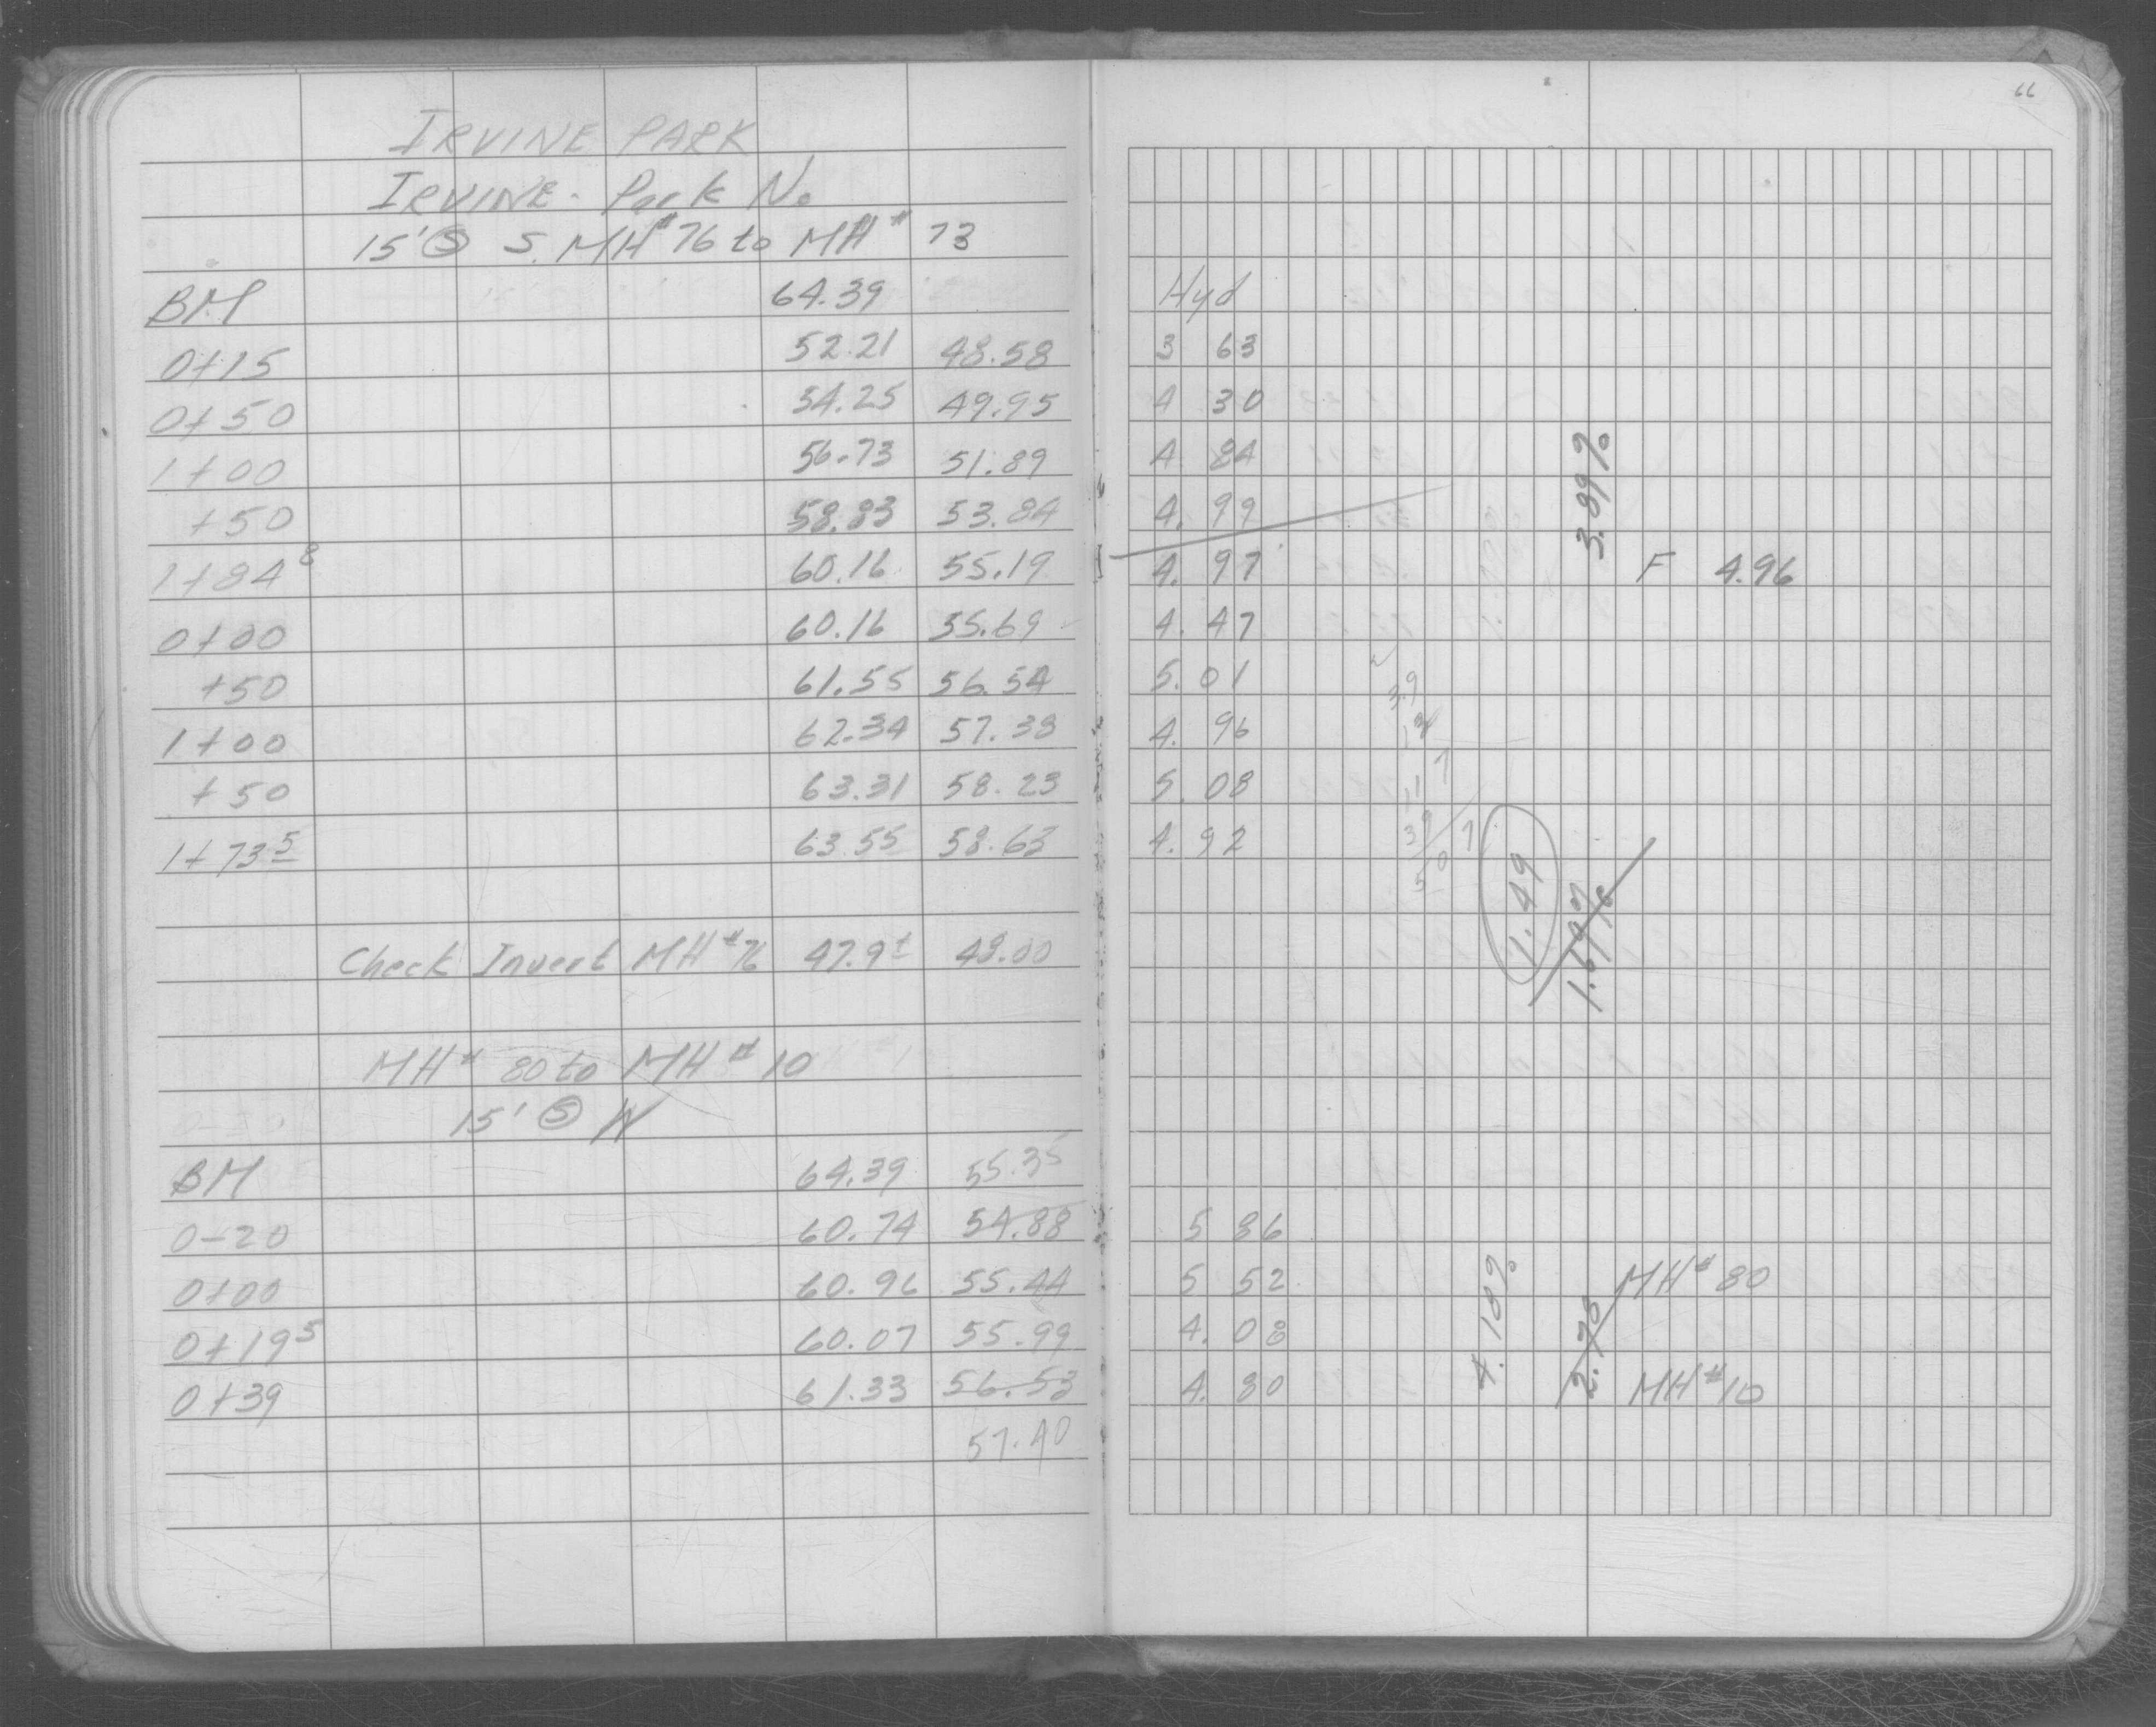 66
IRVINE PARK
IRVINE - Park No
15' Ⓢ S. MH#76 to MH# 73
BM 64.39 Hyd
0+15 52.21 48.58 3 63
0+50 54.25 49.95 4 30
1+00 56.73 51.89 4. 84
+50 58.83 53.84 4. 99
3.89%
1+84⁸ 60.16 55.19 4. 97 F 4.96
0+00 60.16 55.69 4. 47
+50 61.55 56.54 5. 01
1+00 62.34 57.38 4. 96
+50 63.31 58.23 5. 08
1+73⁵ 63.55 58.63 4. 92
1.49
1.69%
Check Invert MH#76 47.9± 48.00
MH# 80 to MH# 10
15' Ⓢ W
BM 64.39 55.35
0-20 60.74 54.88 5 86
0+00 60.96 55.44 5 52 MH# 80
0+19⁵ 60.07 55.99 4. 08
4.10%
2.70
0+39 61.33 56.53 4. 80 MH#10
57.40